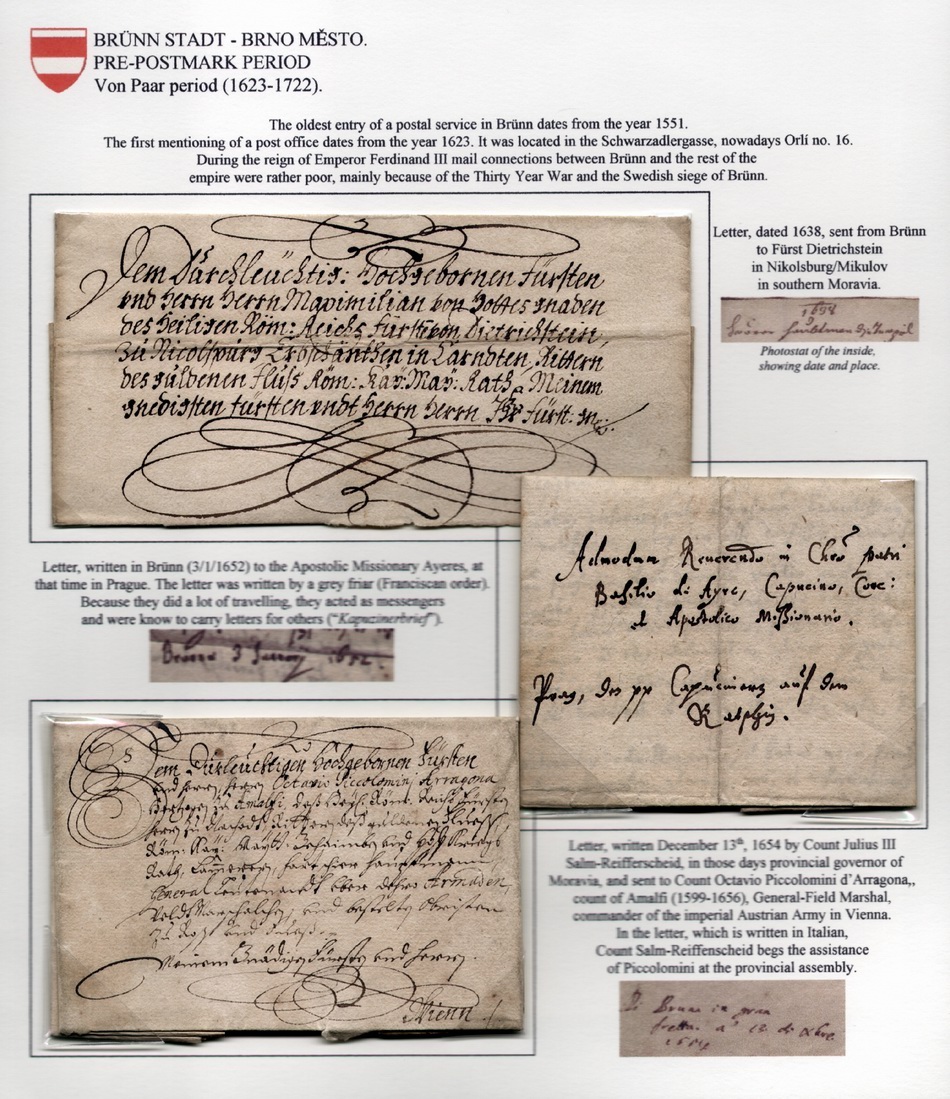 BRÜNN STADT - BRNO MĚSTO.
PRE-POSTMARK PERIOD
Von Paar period (1623-1722).
The oldest entry of a postal service in Brünn dates from the year 1551.
The first mentioning of a post office dates from the year 1623. It was located in the Schwarzadlergasse, nowadays Orlí no. 16.
During the reign of Emperor Ferdinand III mail connections between Brünn and the rest of the
empire were rather poor, mainly because of the Thirty Year War and the Swedish siege of Brünn.
Dem Dürchleüchtig: Hochgebornen Fürsten
vnd Herrn Herrn Maximilian von Gottes gnaden
des Heiligen Röm: Reichs fürsten von Dietrichstein,
Zu Nicolspurg Erbschänkhen in Carndten, Rittern
des güldenen flüss Röm: Kay: May: Rath, Meinem
gnedigsten fürsten vndt Herrn Herrn Ihr fürst: gn:
Letter, dated 1638, sent from Brünn
to Fürst Dietrichstein
in Nikolsburg/Mikulov
in southern Moravia.
1638
Photostat of the inside,
showing date and place.
Letter, written in Brünn (3/1/1652) to the Apostolic Missionary Ayeres, at
that time in Prague. The letter was written by a grey friar (Franciscan order).
Because they did a lot of travelling, they acted as messengers
and were know to carry letters for others ("Kapuzinerbrief").
Brünn 3 1652.
Admodum Reuerendo in Chrō patri
Basilio di Ayre, Capucino, Conc:
et Apostolico Missionario.
Prag, den pp Capuciners auf dem
Ratschin.
Dem Dürleuchtigen Hochgebornen Fürsten
und herrn, herrn Octavio Piccolominj Arragona
Hertzogen zu Amalfi, deß Heyl: Röm: Reich Fürsten
General Leütenandt über dero Armaden,
Veldt Marschalckhen, und bestelten Obristen
zu Roß und Fueß.
Meinem Gnädigen Fürsten und herrn.
Wienn
Letter, written December 13th, 1654 by Count Julius III
Salm-Reifferscheid, in those days provincial governor of
Moravia, and sent to Count Octavio Piccolomini d'Arragona,,
count of Amalfi (1599-1656), General-Field Marshal,
commander of the imperial Austrian Army in Vienna.
In the letter, which is written in Italian,
Count Salm-Reiffenscheid begs the assistance
of Piccolomini at the provincial assembly.
Di Brunn in gran
fretta a 13 di Xbre
1654